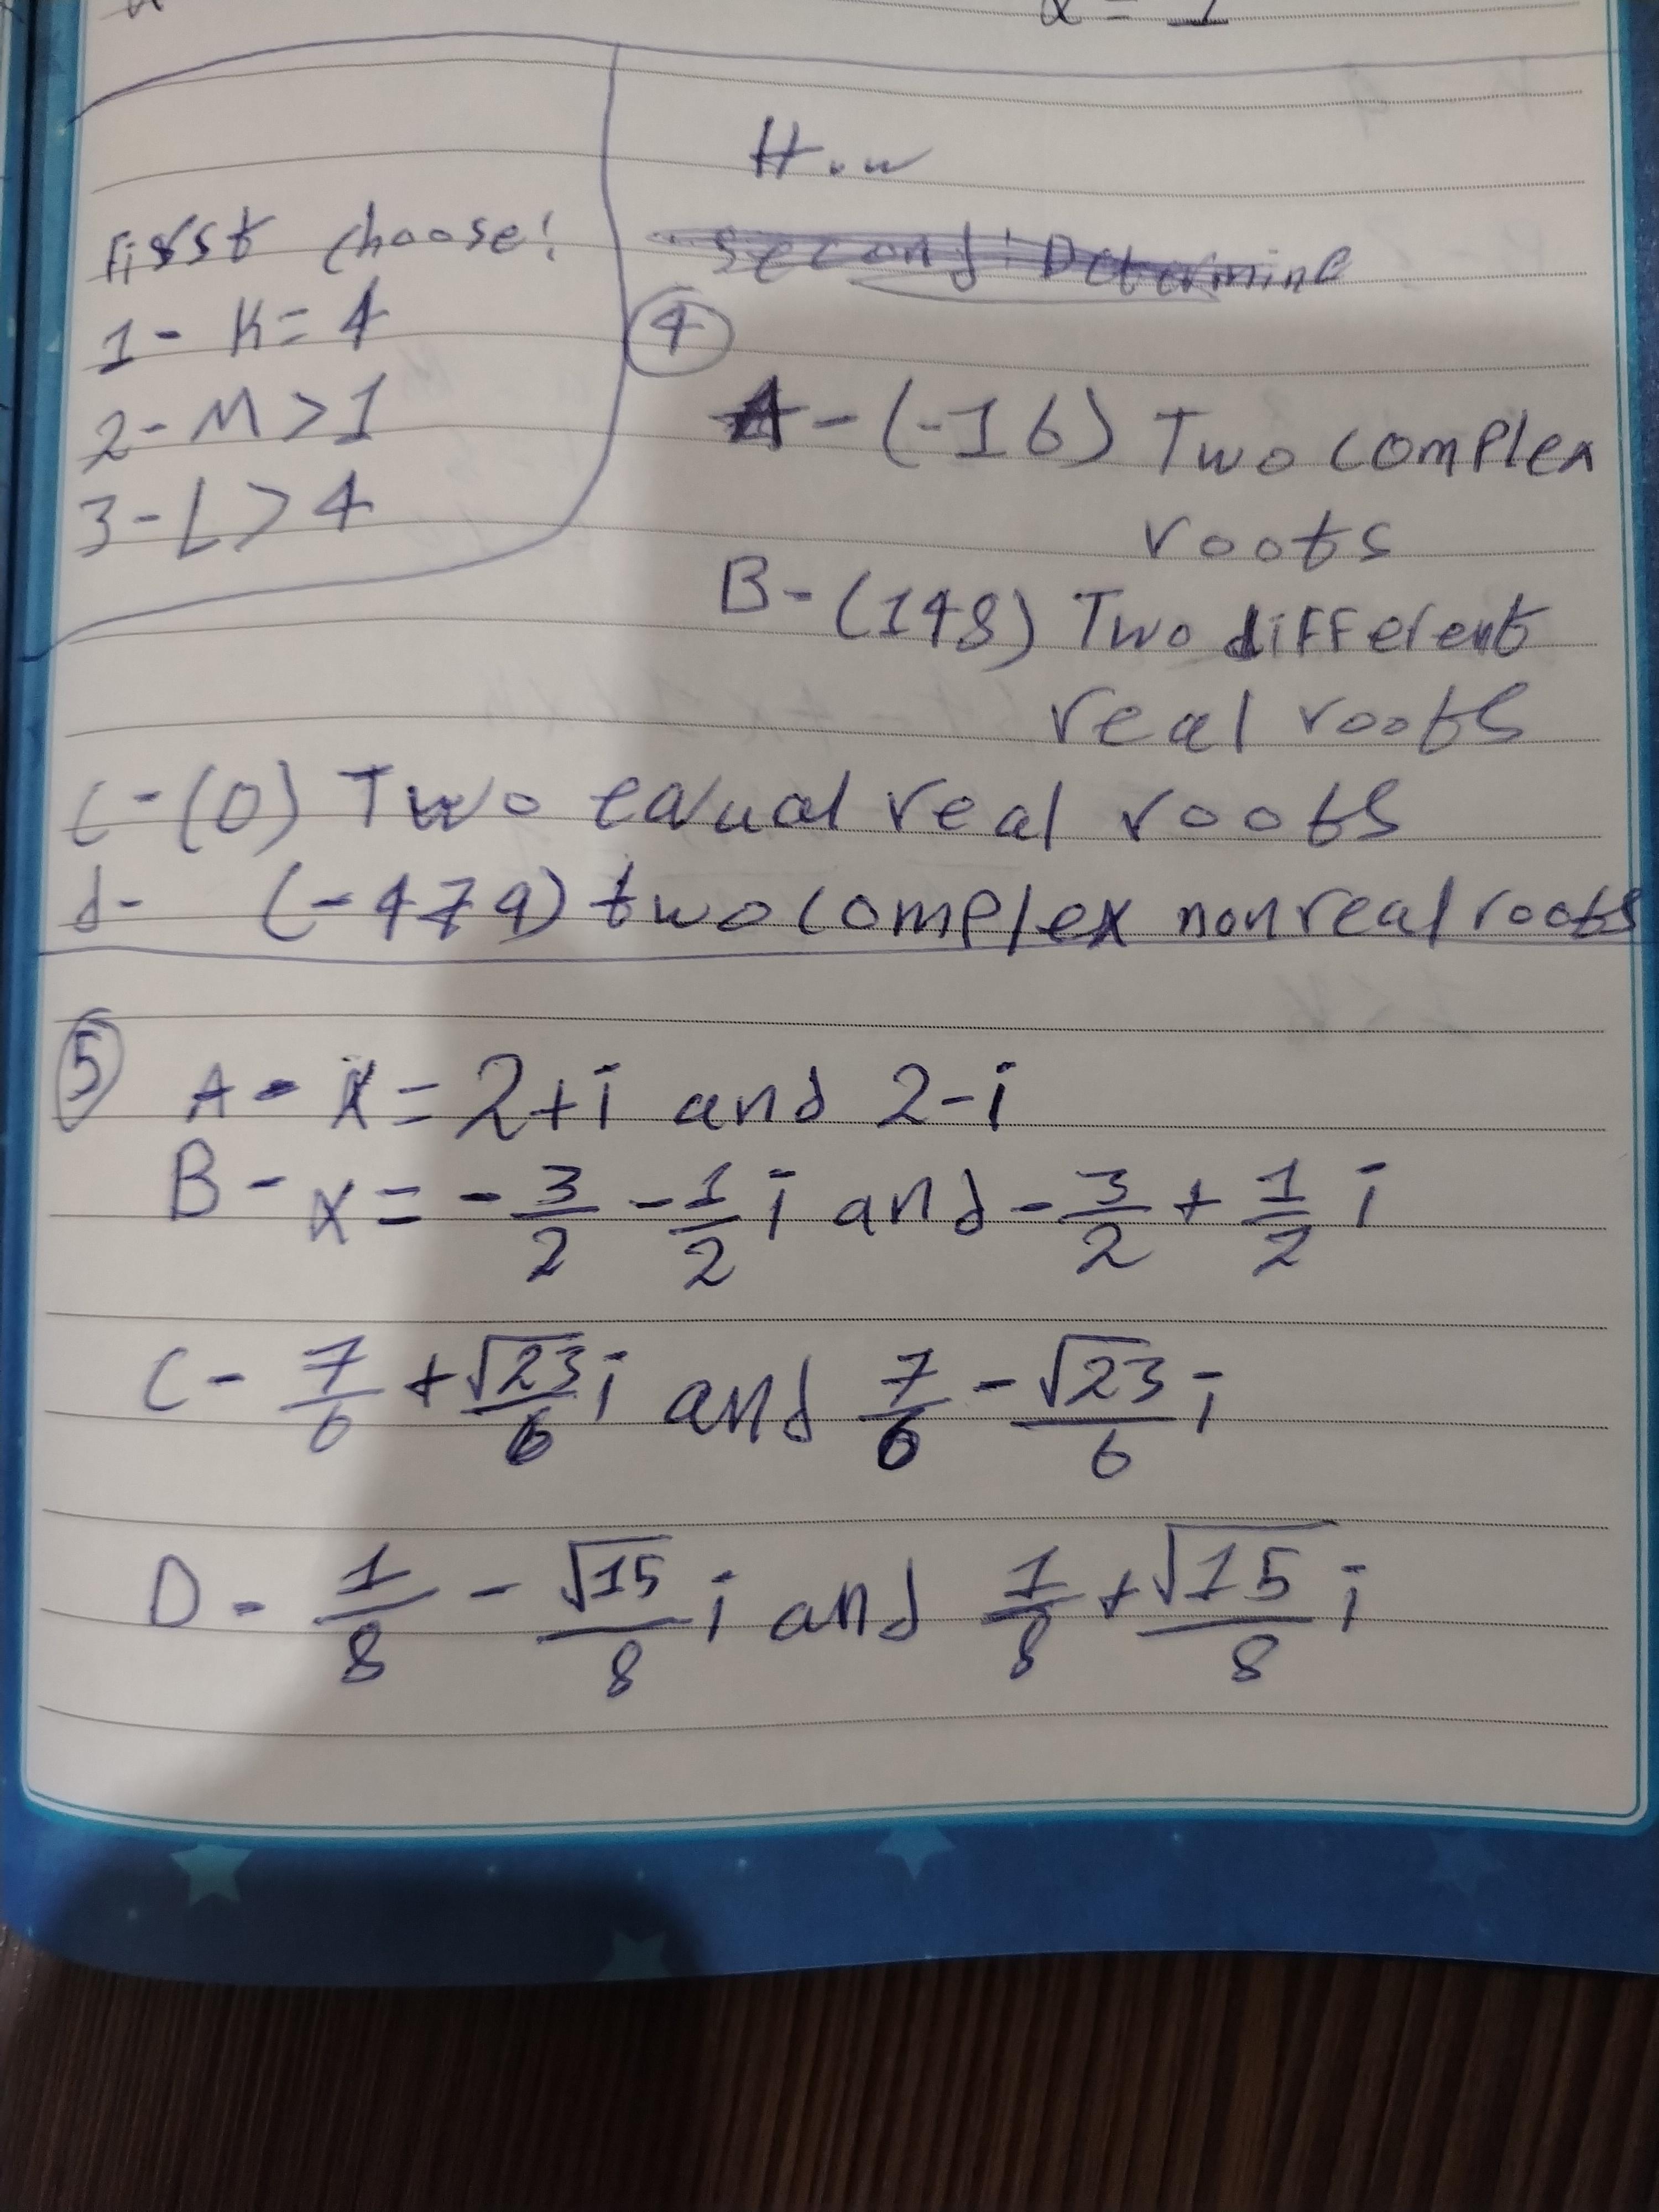 x = 1
First choose:
1- K = 4
2- M > 1
3- L > 4
H.w
Second: Determine
④
A - (-16) Two complex
roots
B - (148) Two different
real roots
C - (0) Two equal real roots
d - (-479) two complex non real roots
⑤
A - x = 2+i and 2-i
B - x = -3/2 - 1/2 i and -3/2 + 1/2 i
C - 7/6 + √23/6 i and 7/6 - √23/6 i
D - 1/8 - √15/8 i and 1/8 + √15/8 i